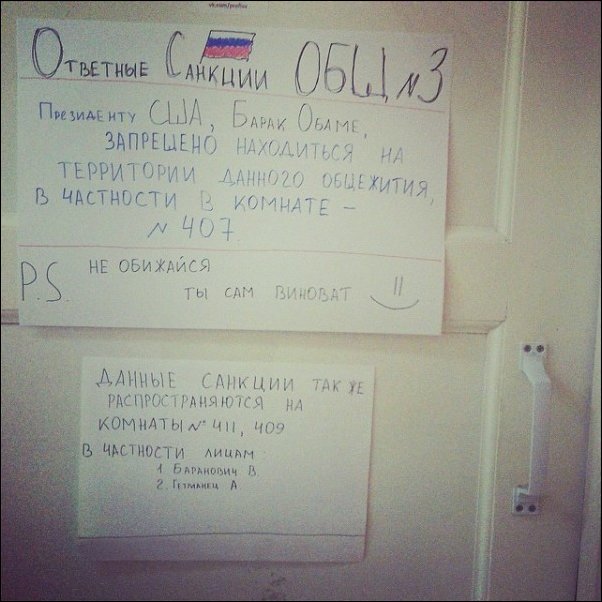 Ответные Санкции ОБЩ №3
Президенту США, Барак Обаме,
ЗАПРЕШЕНО НАХОДИТЬСЯ НА
ТЕРРИТОРИИ ДАННОГО ОБЩЕЖИТИЯ,
В ЧАСТНОСТИ В КОМНАТЕ –
№ 407
P.S. НЕ ОБИЖАЙСЯ
ТЫ САМ ВИНОВАТ
ДАННЫЕ САНКЦИИ ТАК ЖЕ
РАСПРОСТРАНЯЮТСЯ НА
КОМНАТЫ № 411, 409
В ЧАСТНОСТИ ЛИЦАМ
1. Баранович В.
2. Гетманец А